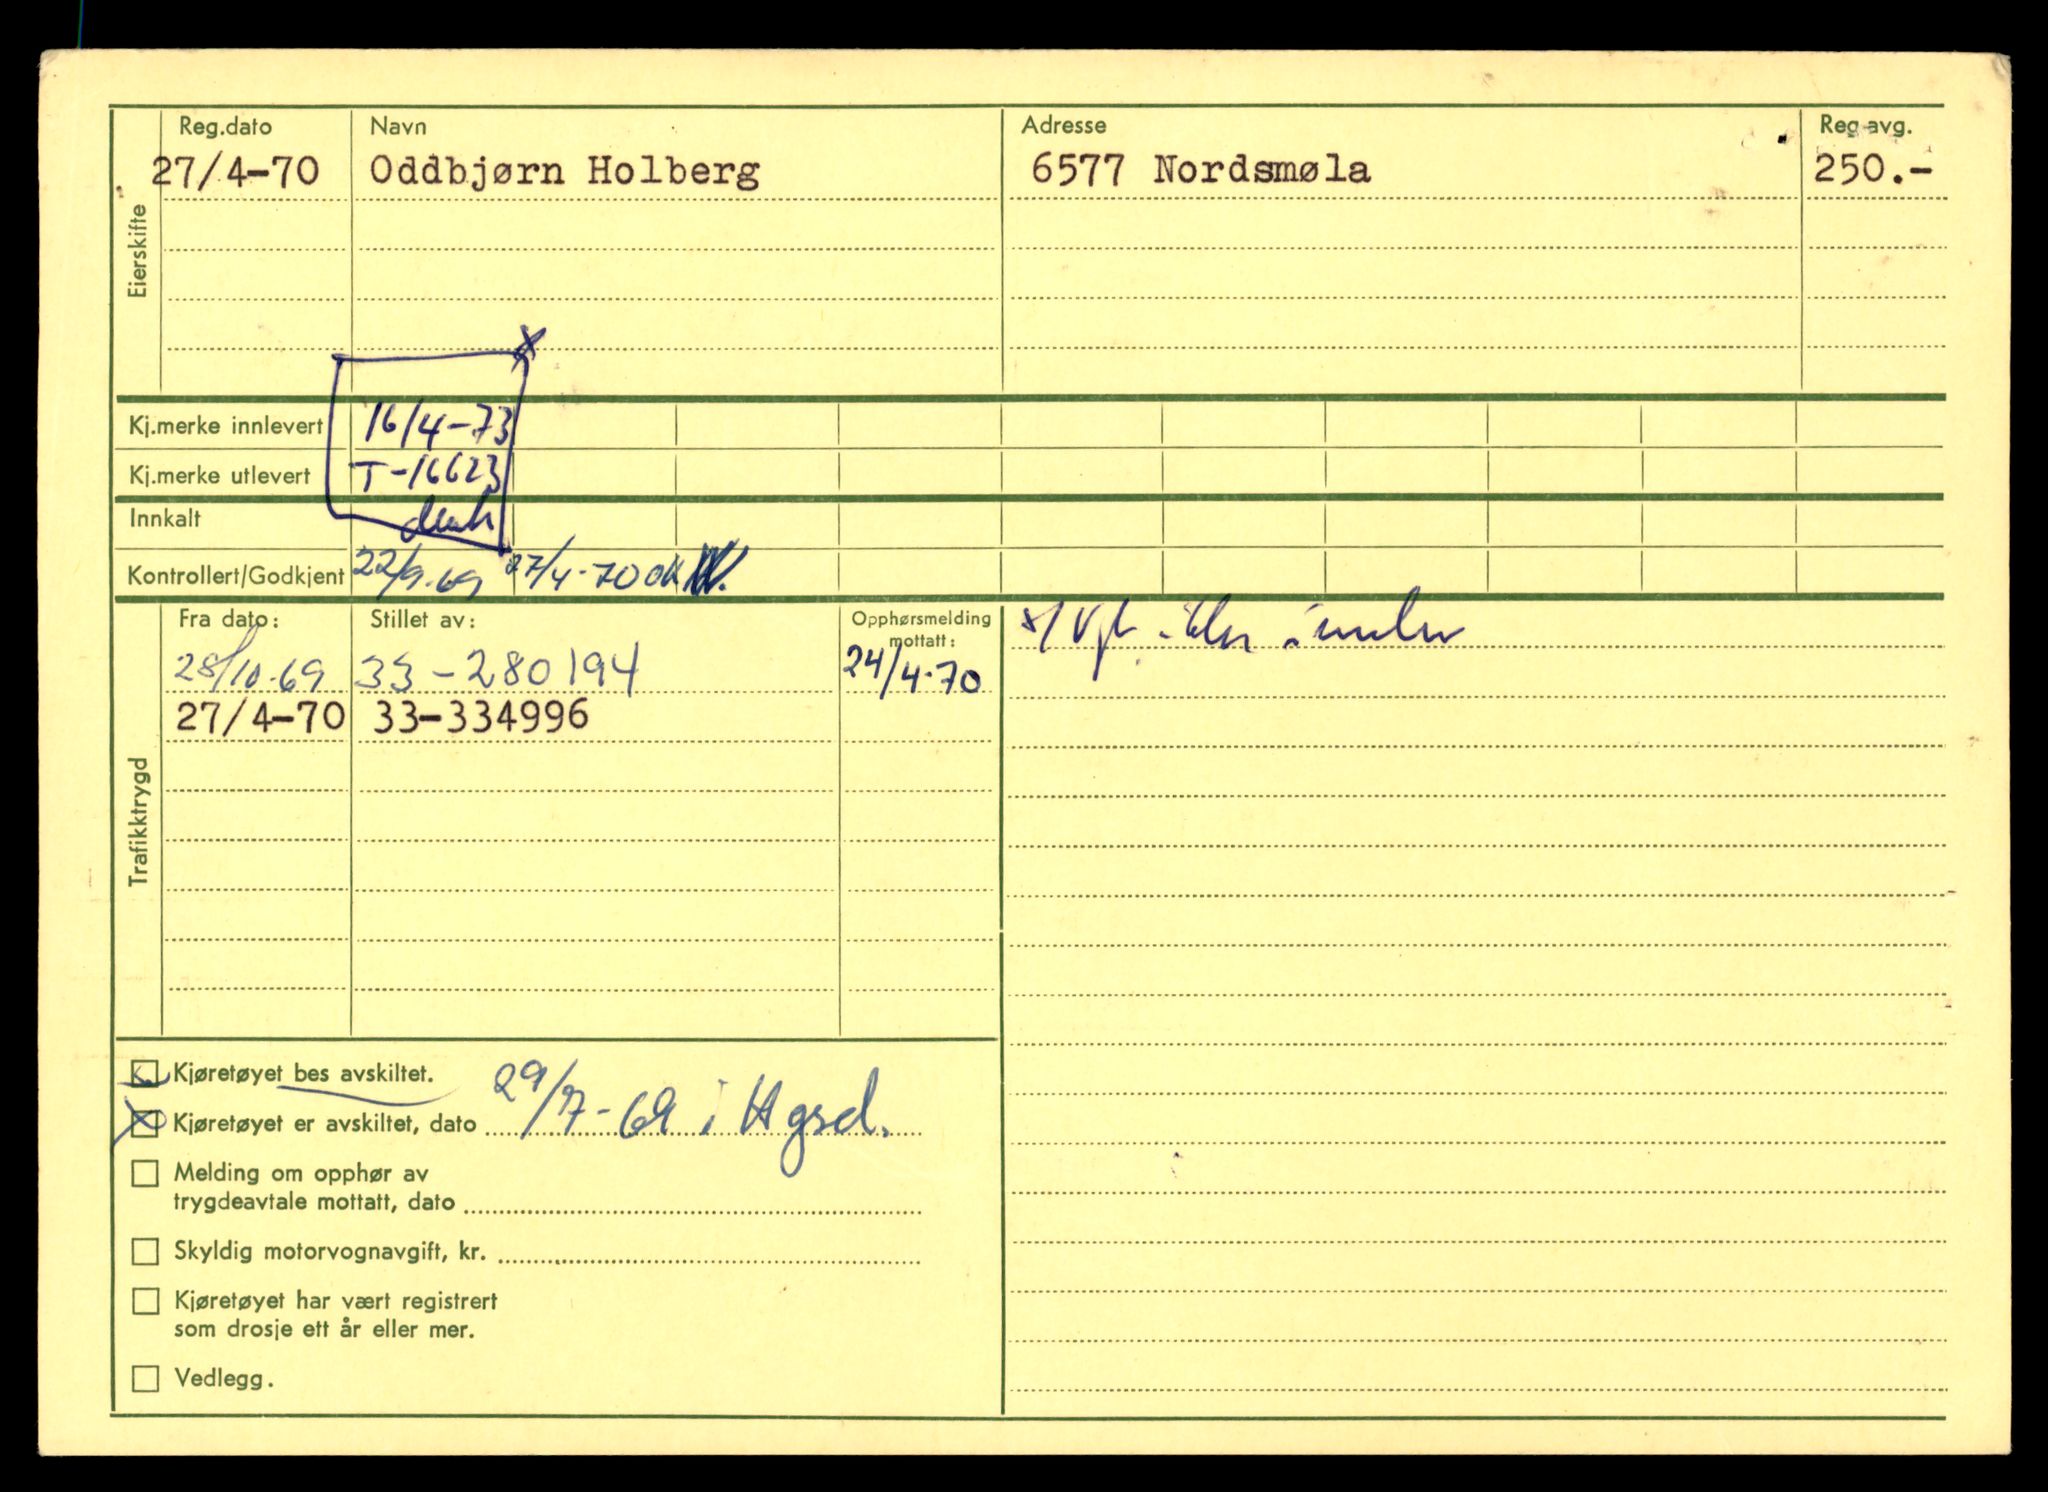 Reg.dato Navn Adresse Reg.avg.
27/4-70 Oddbjørn Holberg 6577 Nordsmøla 250.-
Eierskifte
x
Kj.merke innlevert 16/4-73
Kj.merke utlevert T-16623
Innkalt
Kontrollert/Godkjent 22/9-69 27/4-70 OK
Fra dato: Stillet av: Opphørsmelding
mottatt:
28/10-69 33-280194 24/4-70
27/4-70 33-334996
Trafikktrygd
Kjøretøyet bes avskiltet.
Kjøretøyet er avskiltet, dato 29/7-69 i Hgsd.
Melding om opphør av
trygdeavtale mottatt, dato
Skyldig motorvognavgift, kr.
Kjøretøyet har vært registrert
som drosje ett år eller mer.
Vedlegg.